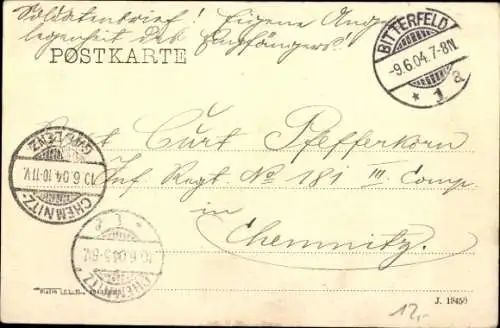 Soldatenbrief! Eigene Ange-
legenheit des Empfängers!
POSTKARTE
BITTERFELD
-9.6.04.7-8N.
* 1 a
Curt Pfefferkorn
Inf. Regt. No 181 III Comp.
in
Chemnitz.
CHEMNITZ-
10.6.04.10-11V.
GABLENZ
CHEMNITZ
10.6.04.5-6V.
J. 19450
12,-